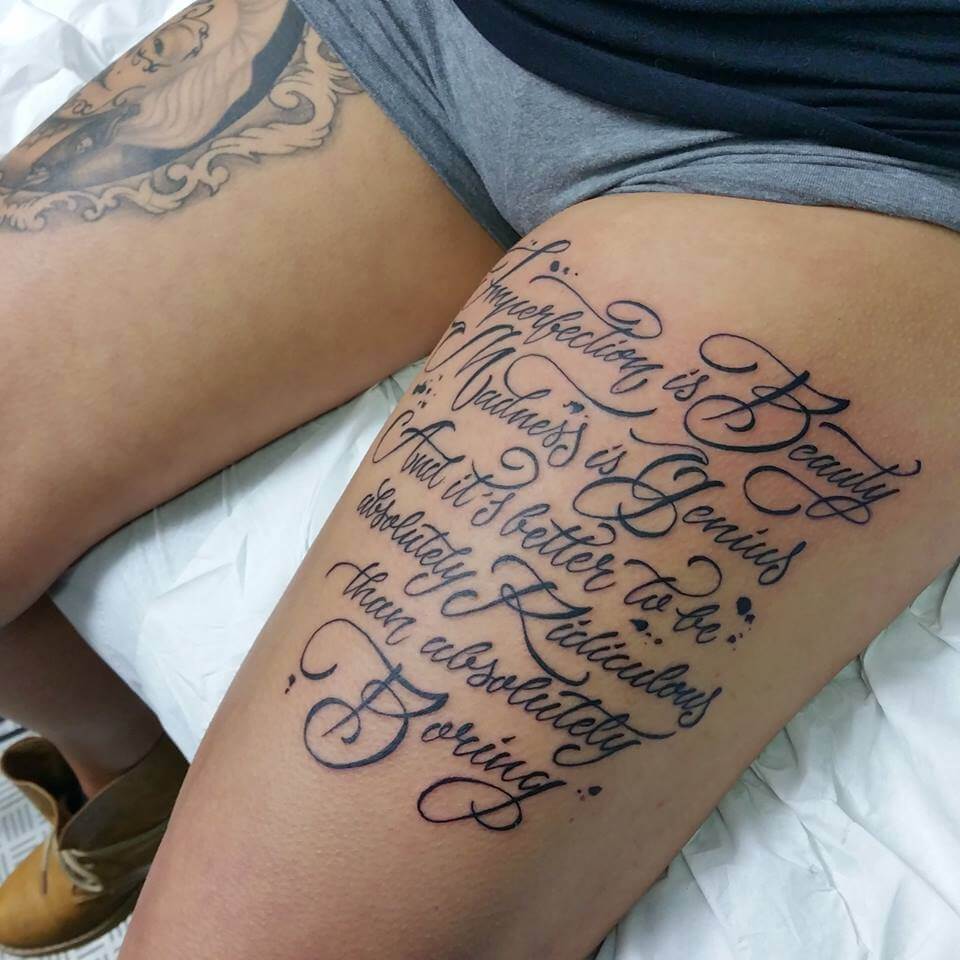 Imperfection is Beauty
Madness is Genius
And it's better to be
absolutely Ridiculous
than absolutely
Boring